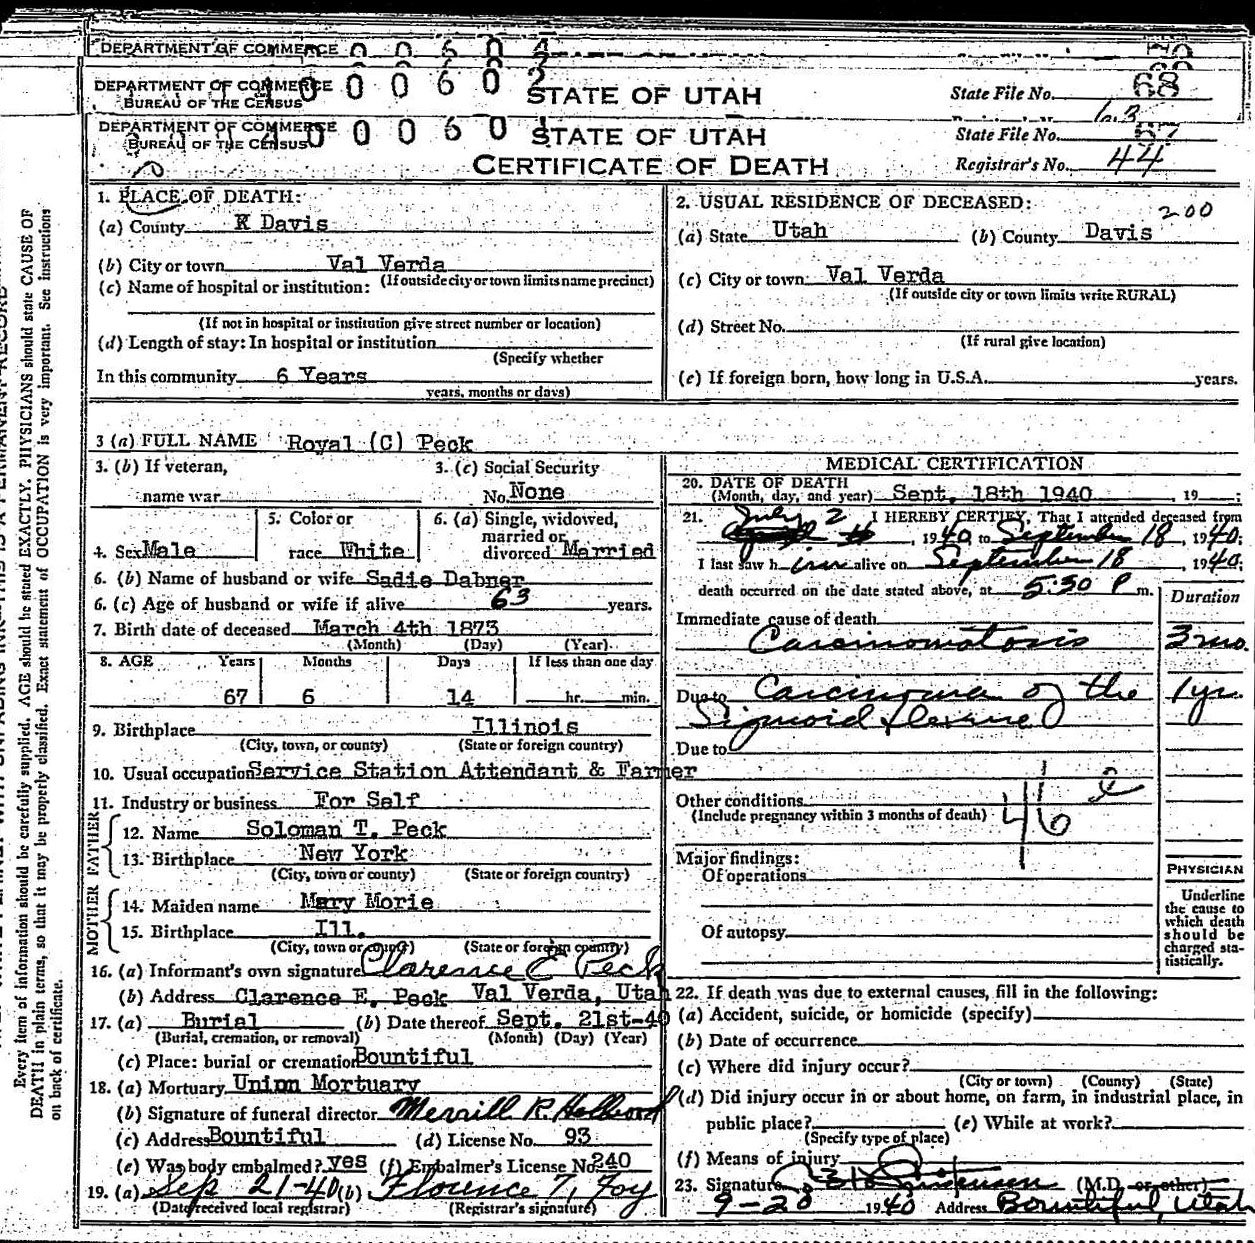 DEPARTMENT OF COMMERCE 0 0 6 0 4
DEPARTMENT OF COMMERCE 0 0 0 6 0 2
BUREAU OF THE CENSUS
STATE OF UTAH
State File No. 68
DEPARTMENT OF COMMERCE 0 0 6 0 1
BUREAU OF THE CENSUS
STATE OF UTAH
State File No. 67
CERTIFICATE OF DEATH
Registrar's No. 44
1. PLACE OF DEATH:
(a) County K Davis
(b) City or town Val Verda
(If outside city or town limits name precinct)
(c) Name of hospital or institution:
(If not in hospital or institution give street number or location)
(d) Length of stay: In hospital or institution
(Specify whether
In this community 6 Years
years, months or days)
2. USUAL RESIDENCE OF DECEASED:
200
(a) State Utah (b) County Davis
(c) City or town Val Verda
(If outside city or town limits write RURAL)
(d) Street No.
(If rural give location)
(e) If foreign born, how long in U.S.A. years.
3 (a) FULL NAME Royal (C) Peck
3. (b) If veteran,
name war
3. (c) Social Security
No. None
4. Sex Male
5. Color or
race White
6. (a) Single, widowed,
married or
divorced Married
6. (b) Name of husband or wife Sadie Dabner
6. (c) Age of husband or wife if alive 63 years.
7. Birth date of deceased March 4th 1873
(Month) (Day) (Year)
8. AGE Years Months Days If less than one day
67 6 14 hr. min.
9. Birthplace Illinois
(City, town, or county) (State or foreign country)
10. Usual occupation Service Station Attendant & Farmer
11. Industry or business For Self
FATHER
12. Name Soloman T. Peck
13. Birthplace New York
(City, town or county) (State or foreign country)
MOTHER
14. Maiden name Mary Morie
15. Birthplace Ill.
(City, town or county) (State or foreign country)
16. (a) Informant's own signature Clarence E Peck
(b) Address Clarence E. Peck Val Verda, Utah
17. (a) Burial (b) Date thereof Sept. 21st-40
(Burial, cremation, or removal) (Month) (Day) (Year)
(c) Place: burial or cremation Bountiful
18. (a) Mortuary Union Mortuary
(b) Signature of funeral director Merrill R. Holbrook
(c) Address Bountiful (d) License No. 93
(e) Was body embalmed? yes (f) Embalmer's License No. 240
19. (a) Sep 21-40 (b) Florence T. Foy
(Date received local registrar) (Registrar's signature)
MEDICAL CERTIFICATION
20. DATE OF DEATH
(Month, day, and year) Sept. 18th 1940, 19 ;
21. I HEREBY CERTIFY, That I attended deceased from
July 2, 1940, to September 18, 1940;
I last saw him alive on September 18, 1940;
death occurred on the date stated above, at 5:30 P m.
Duration
Immediate cause of death
Carcinomatosis 3 mo.
Due to Carcinoma of the 1 yr.
Sigmoid flexure
Due to
Other conditions
(Include pregnancy within 3 months of death)
46
Major findings:
Of operations
Of autopsy
PHYSICIAN
Underline
the cause to
which death
should be
charged sta-
tistically.
22. If death was due to external causes, fill in the following:
(a) Accident, suicide, or homicide (specify)
(b) Date of occurrence
(c) Where did injury occur?
(City or town) (County) (State)
(d) Did injury occur in or about home, on farm, in industrial place, in
public place? (e) While at work?
(Specify type of place)
(f) Means of injury
23. Signature (M.D. or other)
9-20 1940 Address Bountiful, Utah
Every item of information should be carefully supplied. AGE should be stated EXACTLY. PHYSICIANS should state CAUSE OF
DEATH in plain terms, so that it may be properly classified. Exact statement of OCCUPATION is very important. See instructions
on back of certificate.